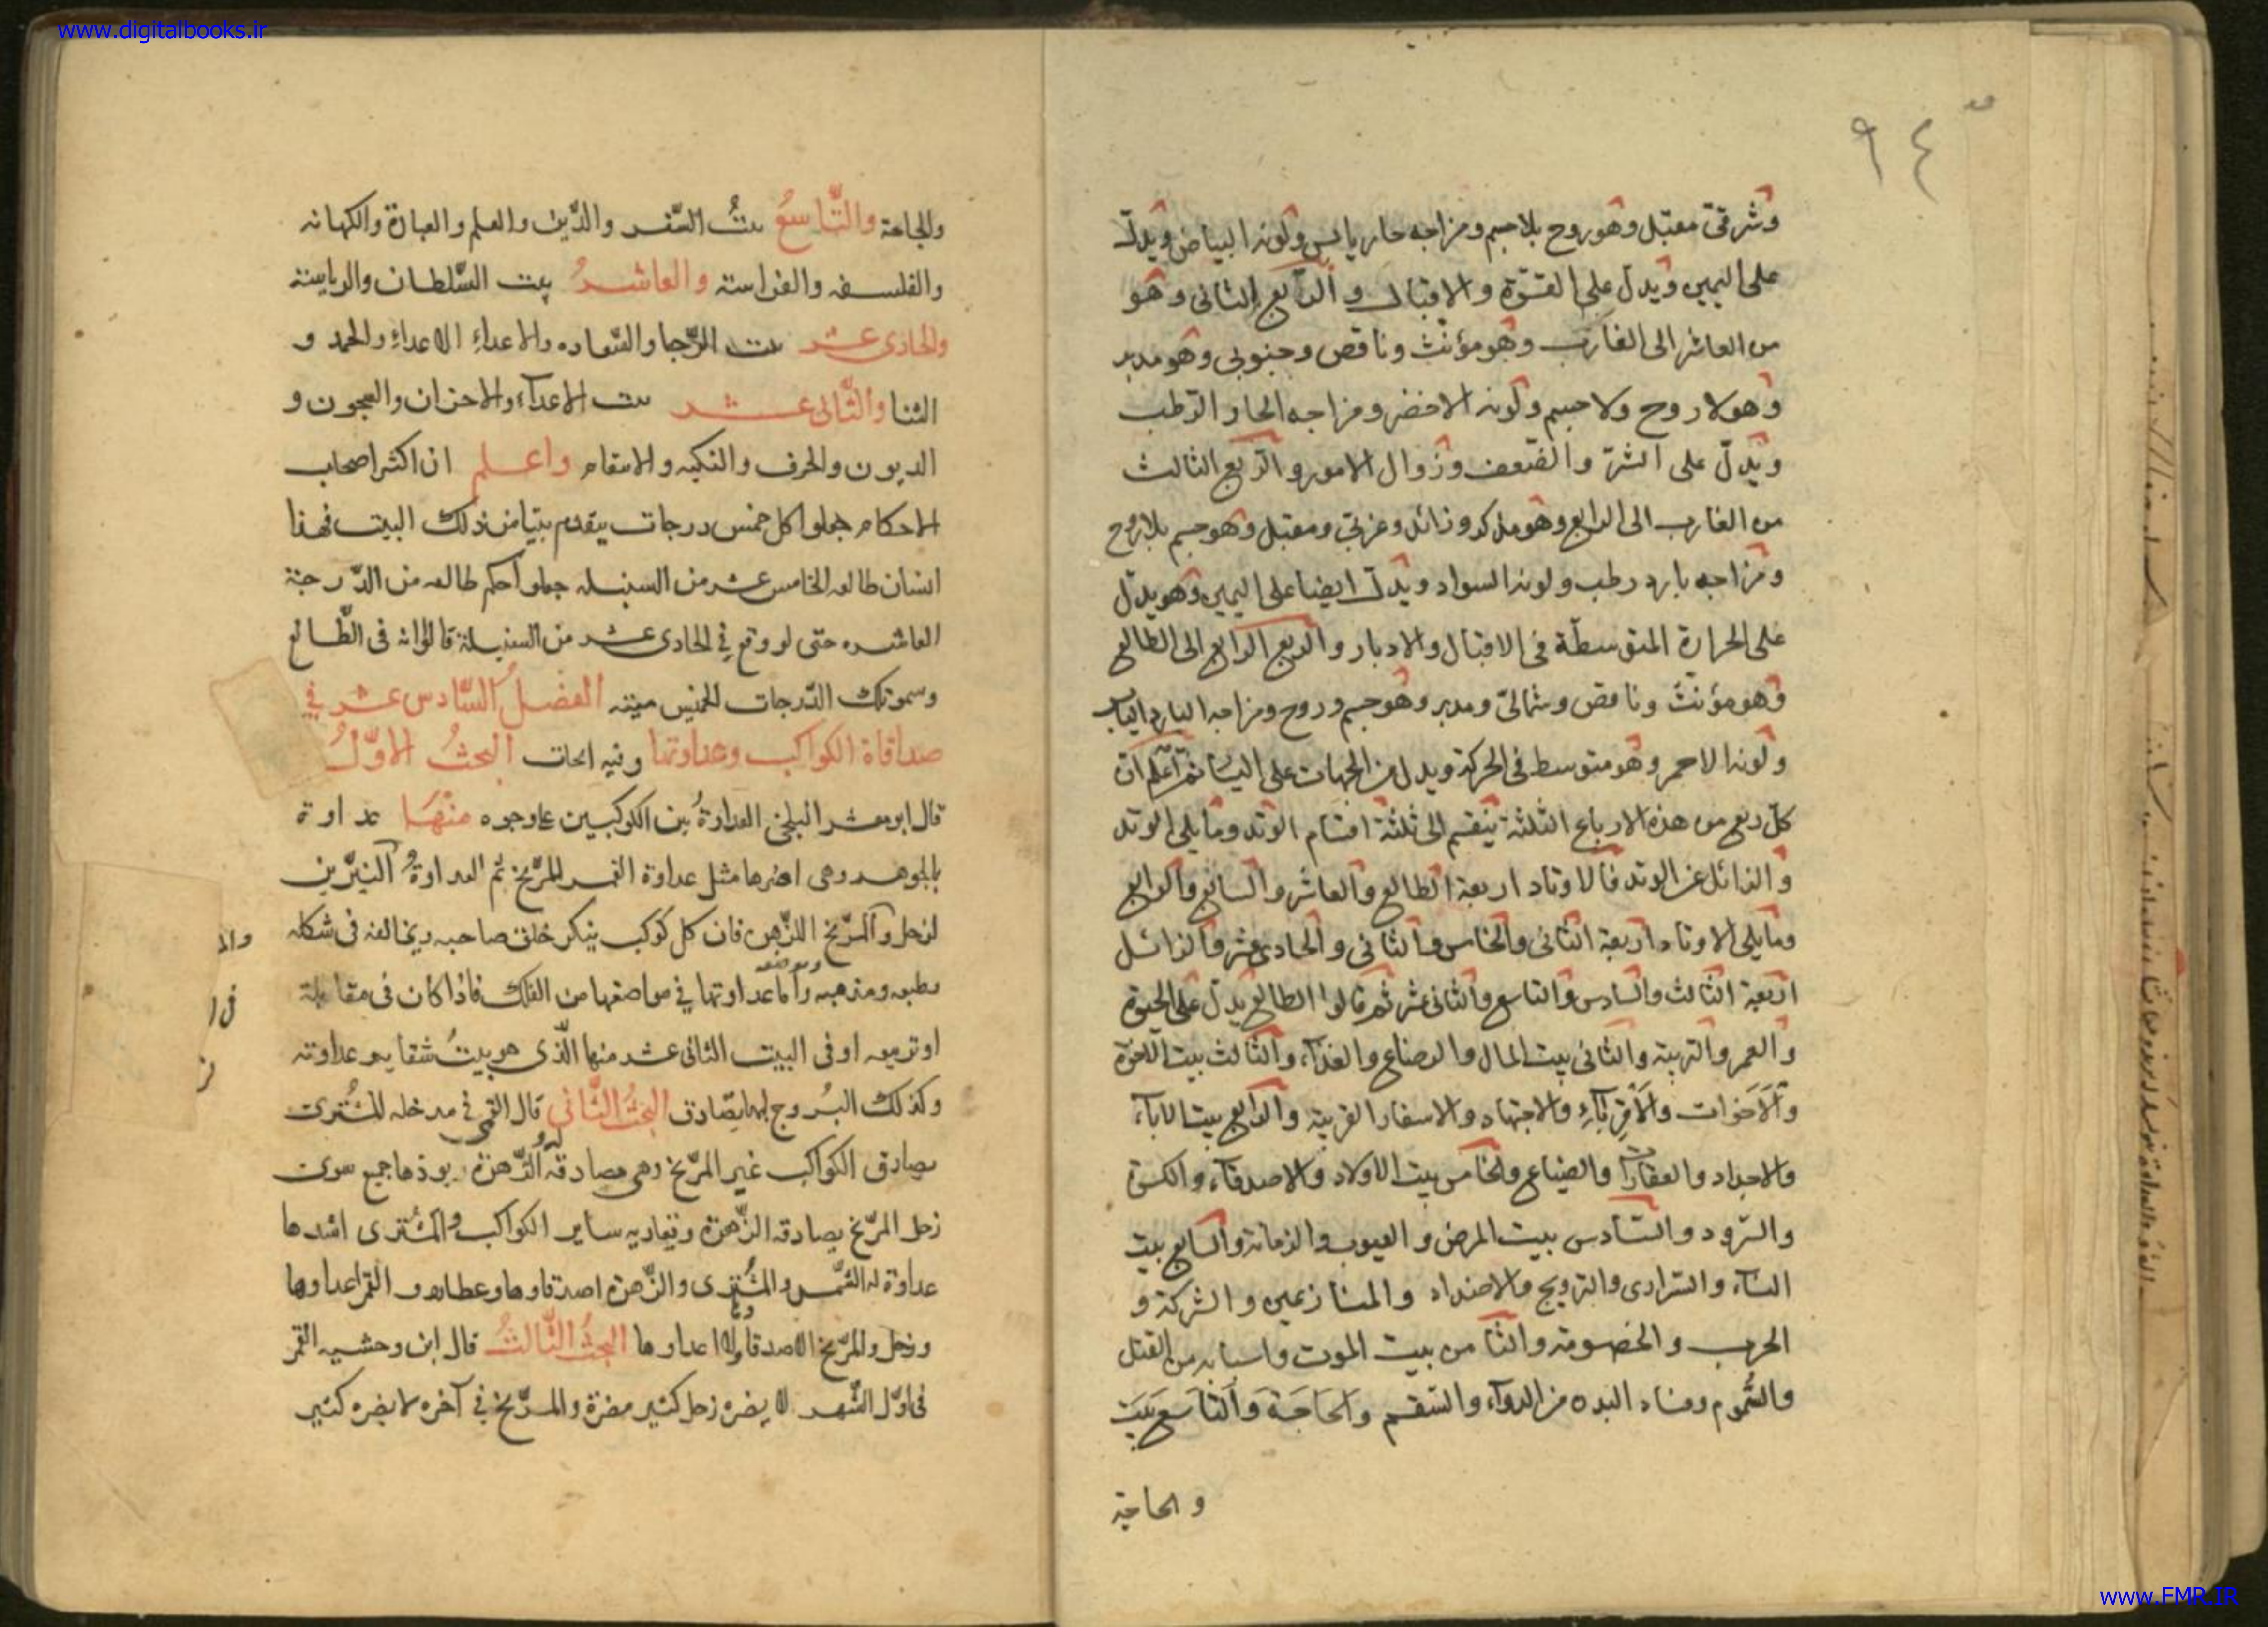 www.digitalbooks.ir
٩٤
وشرقى مقبل وهو روح بلا جسم ومزاجه حار يابس ولونه البياض ويدل
على اليمين ويدل على القوة والاقبال والربع الثانى وهو
من العاشر الى الغارب وهو مؤنث وناقص وجنوبى وهو مدبر
وهو لا روح ولا جسم ولونه الاخضر ومزاجه الحار الرطب
ويدل على الشر والضعف وزوال الامور والربع الثالث
من الغارب الى الرابع وهو مذكر وزائد وغربى ومقبل وهو جسم بلا روح
ومزاجه بارد رطب ولونه السواد ويدل ايضا على اليمين وهو يدل
على الحرارة المتوسطة فى الاقبال والادبار والربع الرابع الى الطالع
وهو مؤنث وناقص وشمالى ومدبر وهو جسم وروح ومزاجه البارد اليابس
ولونه الاحمر وهو متوسط فى الحركة ويدل من الجهات على اليسار ثم اعلم ان
كل ربع من هذه الارباع الثلثة ينقسم الى ثلثة اقسام الوتد وما يلى الوتد
والزائل عن الوتد فالاوتاد اربعة الطالع والعاشر والسابع والرابع
وما يلى الاوتاد اربعة الثانى والخامس والثانى والحادى عشر والزائل
اربعة الثالث والسادس والتاسع والثانى عشر ثم قالوا الطالع يدل على الحيوة
والعمر والتربية والثانى بيت المال والرضاع والغذآء والثالث بيت الاخوة
والاخوات والاقربآء والاجتهاد والاسفار القريبة والرابع بيت الابآء
والاجداد والعقارات والضياع والخامس بيت الاولاد والاصدقآء والكسوة
والسرود والسادس بيت المرض والعيوب والزمانة والسابع بيت
النسآء والسرارى والتزويج والاضداد والمنازعين والشركة و
الحرب والخصومة والثامن بيت الموت واسبابه من القتل
والسموم وفساد البدن من الدوآء والسقم والحاجة والتاسع بيت
والحاجة
والحاجة والتاسع بيت السفر والدين والعلم والعبادة والكهانه
والفلسفه والفراسته والعاشر بيت السلطان والرياسة
والحادى عشر بيت الرجا والسعاده والاعداء الاعداء والحمد و
الثنا والثانى عشر بيت الاعدآء والاحزان والسجون و
الديون والحرف والنكبه والاسقام واعلم ان اكثر اصحاب
الاحكام جعلوا كل خمس درجات يتقدم بيتا من ذلك البيت فهذا
انسان طالعه الخامس عشر من السنبله جعلوا حكم طالعه من الدرجة
العاشره حتى لو وقع فى الحادى عشر من السنبلة قالوا انه فى الطالع
وسموتلك الدرجات الخمس ميته الفصل السادس عشر فى
صداقاة الكواكب وعداوتها وفيه ابحاث البحث الاول
قال ابو معشر البلخى العداوة بين الكوكبين على وجوه منها عداوة
بالجوهر وهى اضرها مثل عداوة القمر للمريخ ثم العداوة النيرين
لزحل والمريخ الزهرة فان كل كوكب ينكر خلق صاحبه ويخالفه فى شكله
وطبعه ومذهبه وموضعه واما عداوتها فى مواضعها من الفلك فاذا كان فى مقابلة
او تربيعه او فى البيت الثانى عشر منها الذى هو بيت شقايه وعداوته
وكذلك البروج لها تصادق البحث الثانى قال القمى فى مدخله المشترى
يصادق الكواكب غير المريخ وهى مصادقة الزهرة يوذها جميع سوى
زحل المريخ يصادقه الزهرة وتعاديه ساير الكواكب والمشترى اشدها
عداوة له الشمس والمشترى والزهرة اصدقاوها وعطارد والقمر اعداوها
وزحل والمريخ لا صدقا ولا اعداوها البحث الثالث قال ابن وحشيه القمر
فى اول الشهر لا يضره زحل كثير مضرة والمريخ فى آخره لا يضره كثير
www.FMR.IR